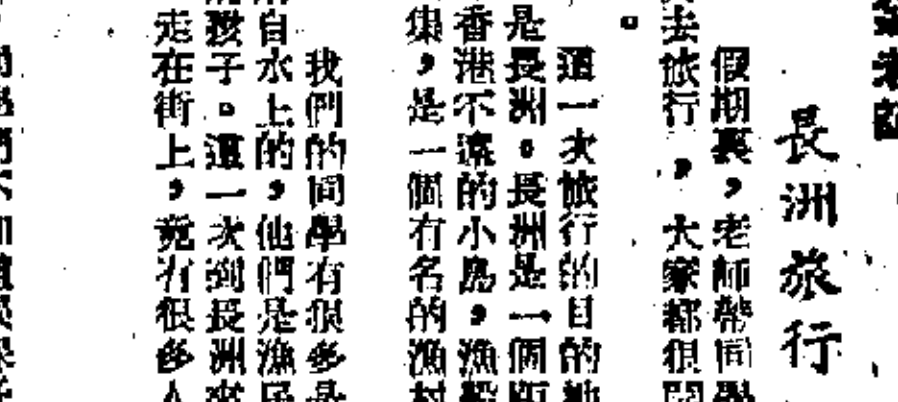 長洲旅行
假期裏，老師帶同學
去旅行，大家都很開
這一次旅行的目的地
是長洲。長洲是一個距
香港不遠的小島，漁船
集，是一個有名的漁村
我們的同學有很多是
自水上的，他們是漁民
孩子。這一次到長洲來
走在街上，竟有很多人